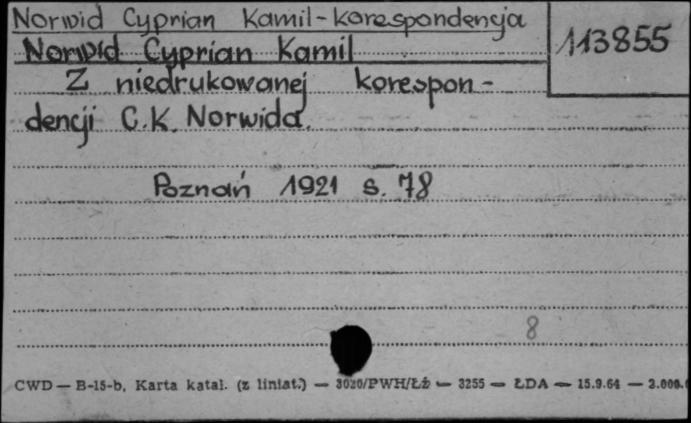 Norwid Cyprian Kamil-korespondencja
113855
Norwid Cyprian Kamil
Z niedrukowanej korespon-
dencji C.K. Norwida.
Poznań 1921 s. 78
8
CWD — B-15-b, Karta katal. (z liniat.) — 3020/PWH/Łż — 3255 — ŁDA — 15.9.64 — 2.000.0